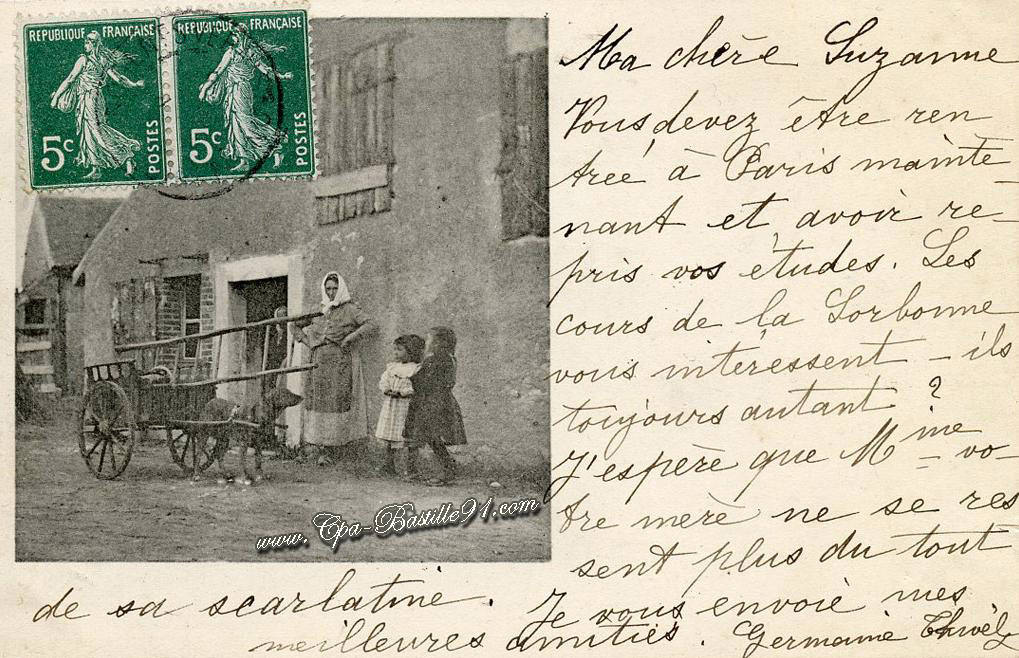 REPUBLIQUE FRANÇAISE
5c
POSTES
REPUBLIQUE FRANÇAISE
5c
POSTES
Ma chère Suzanne
Vous devez être ren
trée à Paris mainte
nant et avoir re-
pris vos études. Les
cours de la Sorbonne
vous intéressent - ils
toujours autant ?
J'espère que Mme vo-
tre mère ne se res
sent plus du tout
de sa scarlatine. Je vous envoie mes
meilleures amitiés. Germaine
www.Cpa-Bastille91.com